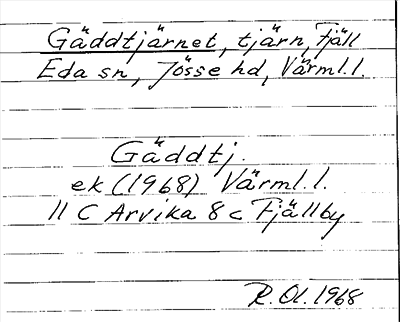 Gäddtjärnet, tjärn, Fjäll
Eda sn, Jösse hd, Värml.l.
Gäddtj.
ek (1968) Värml.l.
11 C Arvika 8 c Fjällby
R.Ol.1968